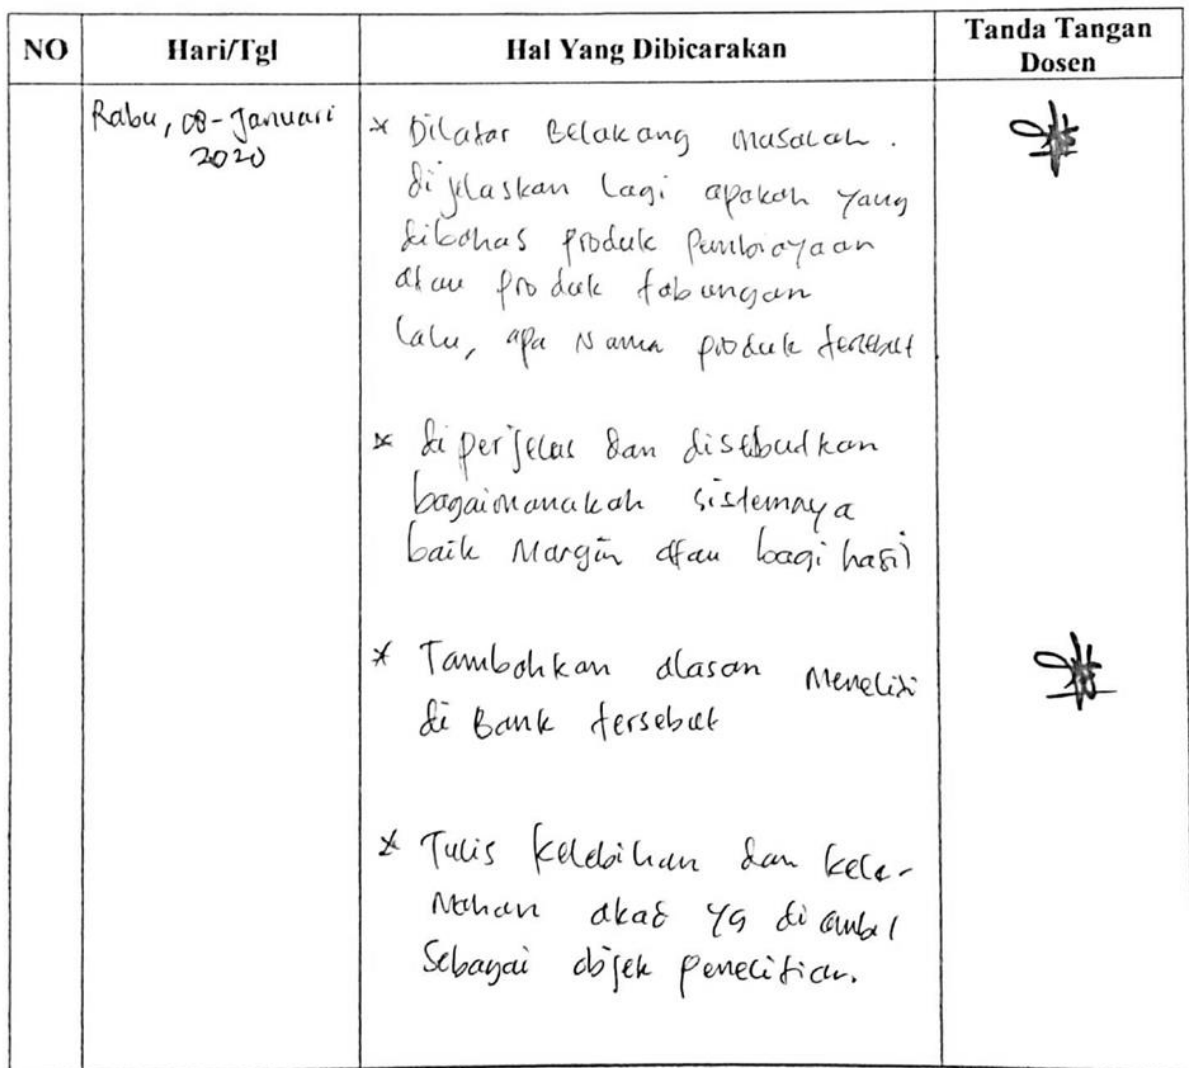 NO Hari/Tgl Hal Yang Dibicarakan Tanda Tangan Dosen
Rabu, 08-Januari
2020
* Dilatar Belakang masalah.
dijelaskan lagi apakah yang
dibahas produk Pembiayaan
atau produk tabungan
lalu, apa Nama produk tersebut
* diperjelas dan disebutkan
bagaimanakah sistemnya
baik Margin atau bagi hasil
* Tambahkan alasan Meneliti
di Bank tersebut
* Tulis kelebihan dan kele-
mahan akad yg di ambil
Sebagai objek penelitian.